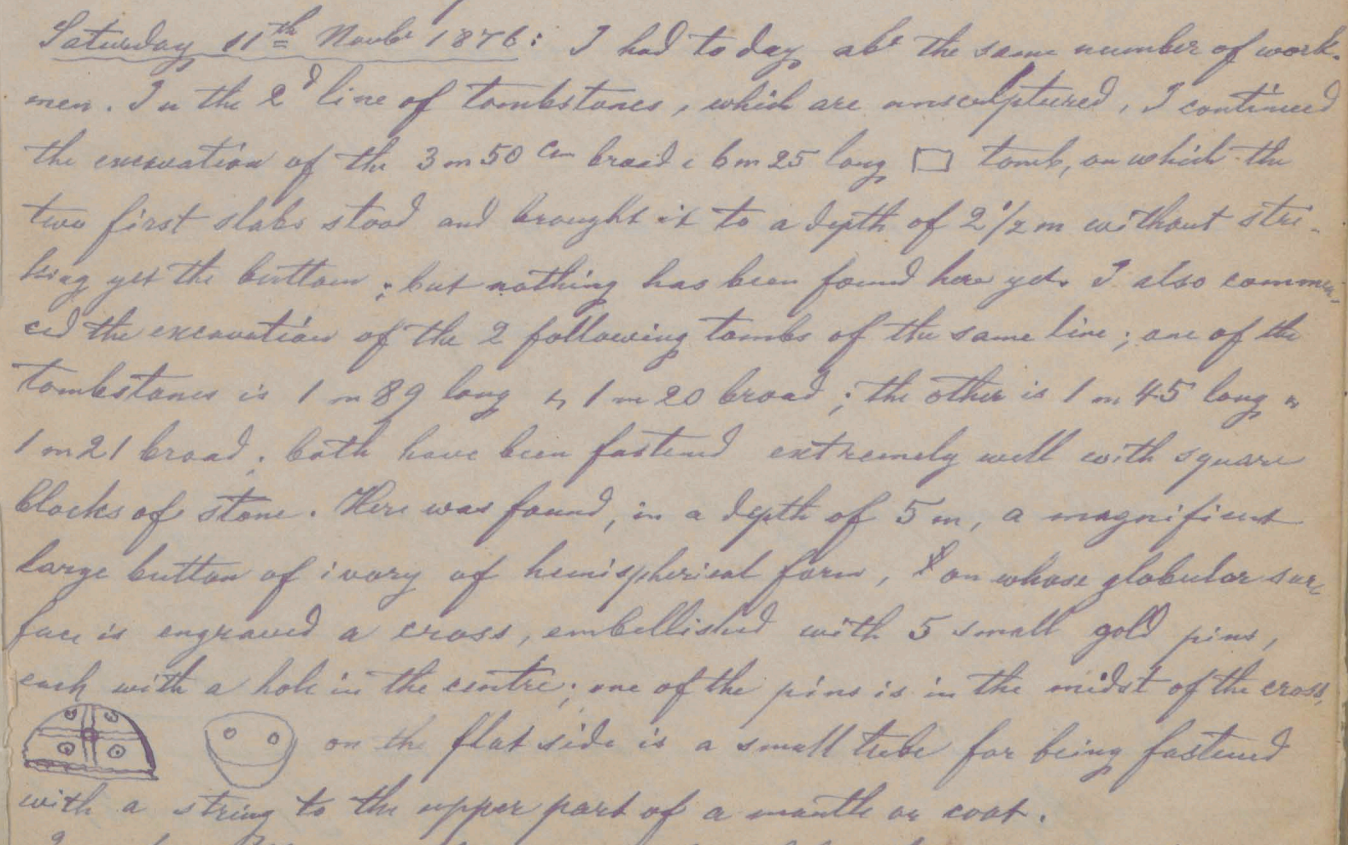 Saturday 11th Novbr 1876: I had to day abt the same number of work-
men. In the 2d line of tombstones, which are unsculptured, I continued
the excavation of the 3 m 50 cm broad & 6 m 25 long tomb, on which the
two first slabs stood and brought it to a depth of 2 1/2 m without stri-
king yet the bottom; but nothing has been found here yet. I also commen-
ced the excavation of the 2 following tombs of the same line; one of the
tombstones is 1 m 89 long & 1 m 20 broad; the other is 1 m 45 long &
1 m 21 broad; both have been fastened extremely well with square
blocks of stone. Here was found, in a depth of 5 m, a magnificent
large button of ivory of hemispherical form, on whose globular sur-
face is engraved a cross, embellished with 5 small gold pins,
each with a hole in the centre; one of the pins is in the midst of the cross,
on the flat side is a small tube for being fastened
with a string to the upper part of a mantle or coat.